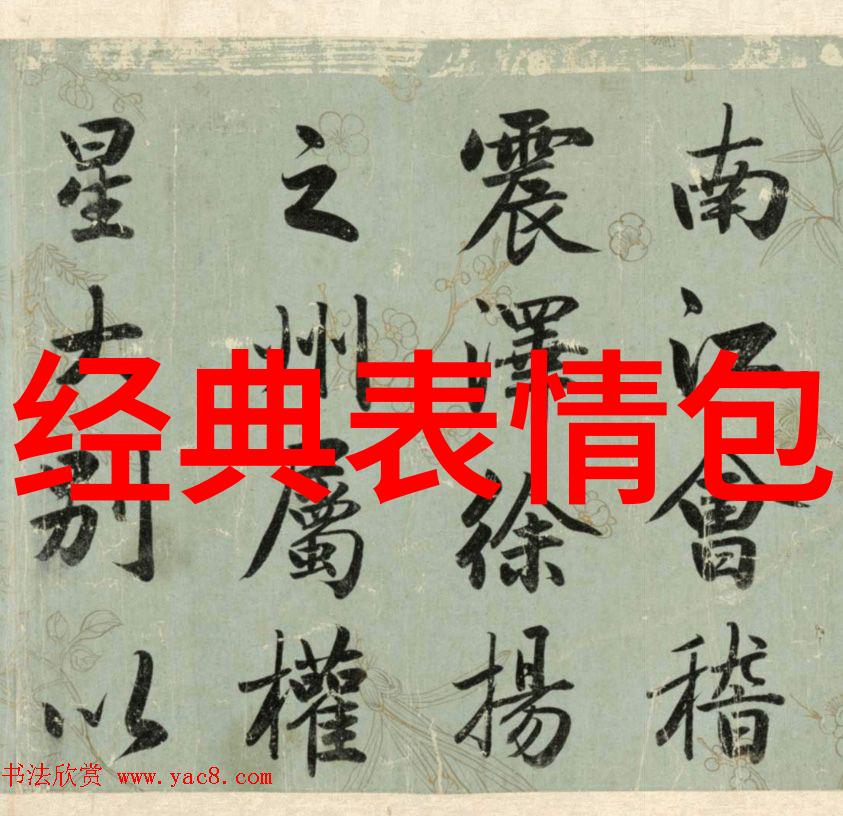 南江會稽
震澤徐揚
之州屬權
星土别以
经典表情包
书法欣赏 www.yac8.com